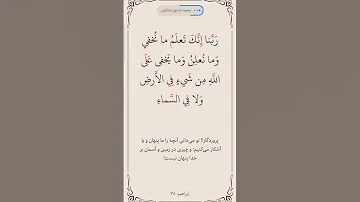 رَبَّنا إِنَّكَ تَعلَمُ ما نُخفي
وَما نُعلِنُ وَما يَخفى عَلَى
اللَّهِ مِن شَيءٍ فِي الأَرضِ
وَلا فِي السَّماءِ
پروردگارا! تو می‌دانی آنچه را ما پنهان و یا
آشکار می‌کنیم؛ و چیزی در زمین و آسمان بر
خدا پنهان نیست!
إبراهیم ۳۸